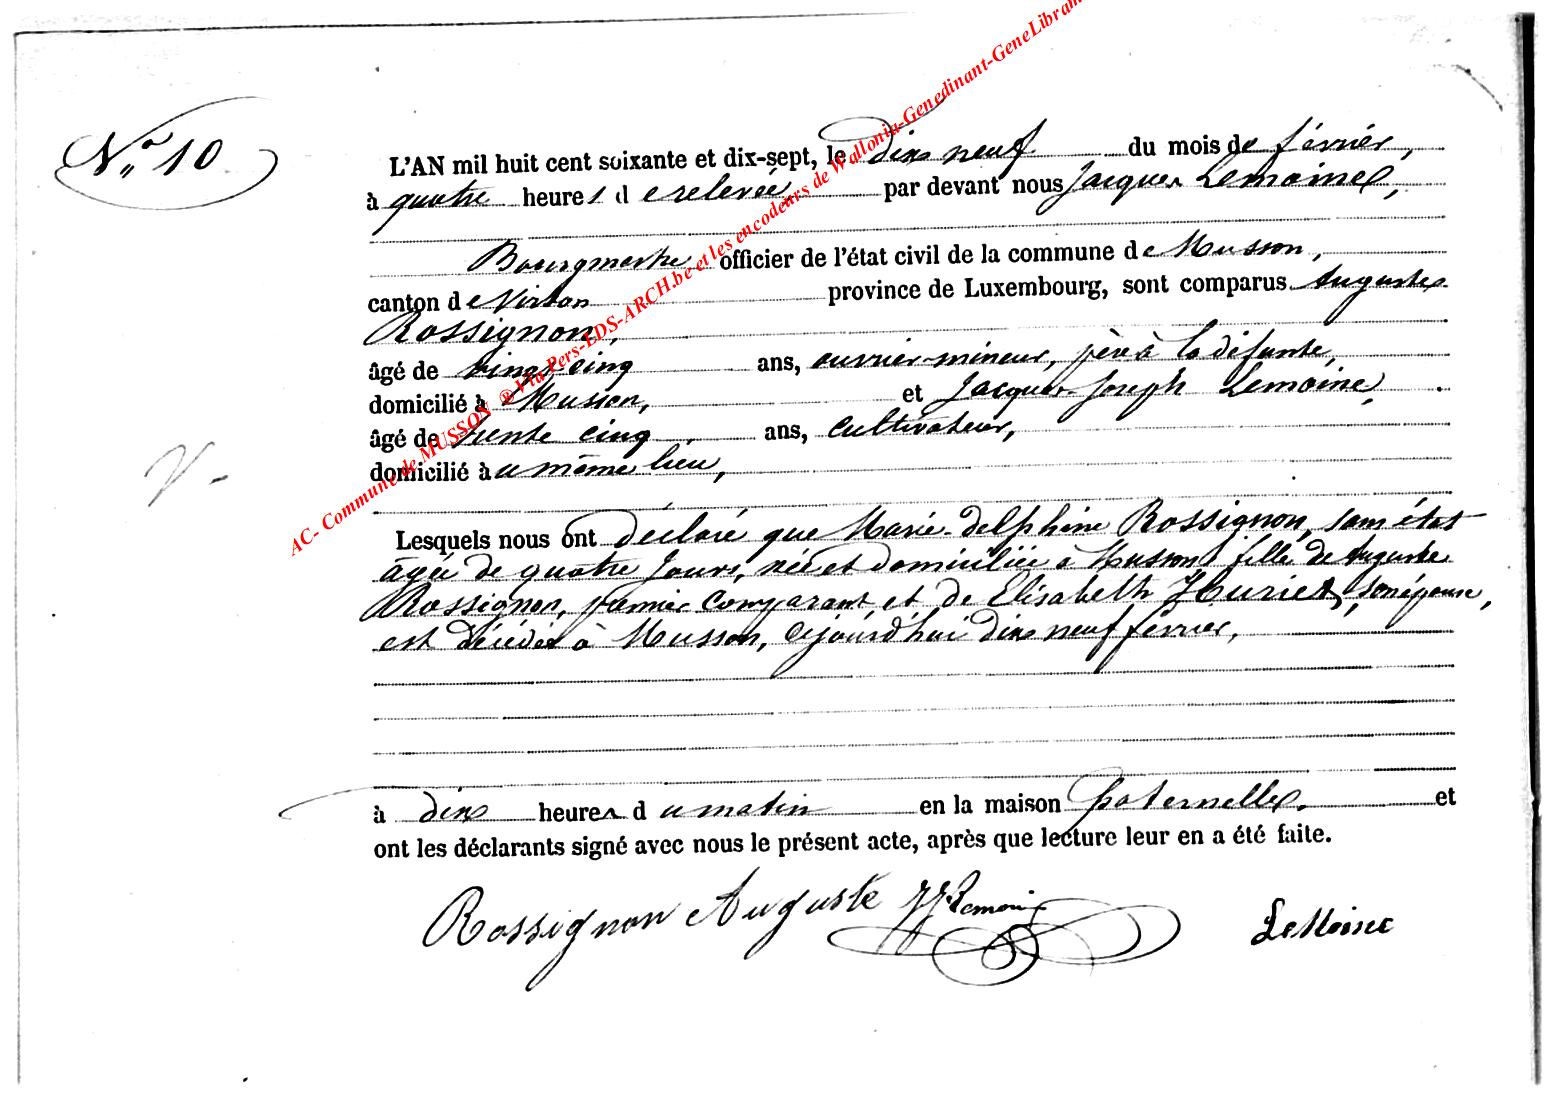 N° 10
L'AN mil huit cent soixante et dix-sept, le dix neuf du mois de février,
à quatre heures de relevée, par devant nous Jacques Lemoine,
Bourgmestre, officier de l'état civil de la commune de Musson,
canton de Virton province de Luxembourg, sont comparus Auguste
Rossignon,
âgé de vingt cinq ans, ouvrier-mineur, père à la défunte,
domicilié à Musson, et Jacques-Joseph Lemoine,
âgé de trente cinq ans, cultivateur,
domicilié au même lieu,
Lesquels nous ont déclaré que Marie-Delphine Rossignon, sans état
agée de quatre jours, née et domiciliée à Musson, fille de Auguste
Rossignon, premier comparant et de Elisabeth Huriet, son épouse,
est décédée à Musson, cejourd'hui dix neuf février,
à dix heures du matin en la maison paternelle. et
ont les déclarants signé avec nous le présent acte, après que lecture leur en a été faite.
Rossignon Auguste JJ Lemoine LeMoine
AC- Commune de MUSSON ® Via Pers-EDS-ARCH.be et les encodeurs de Wallonia-Genedinant-GeneLibram